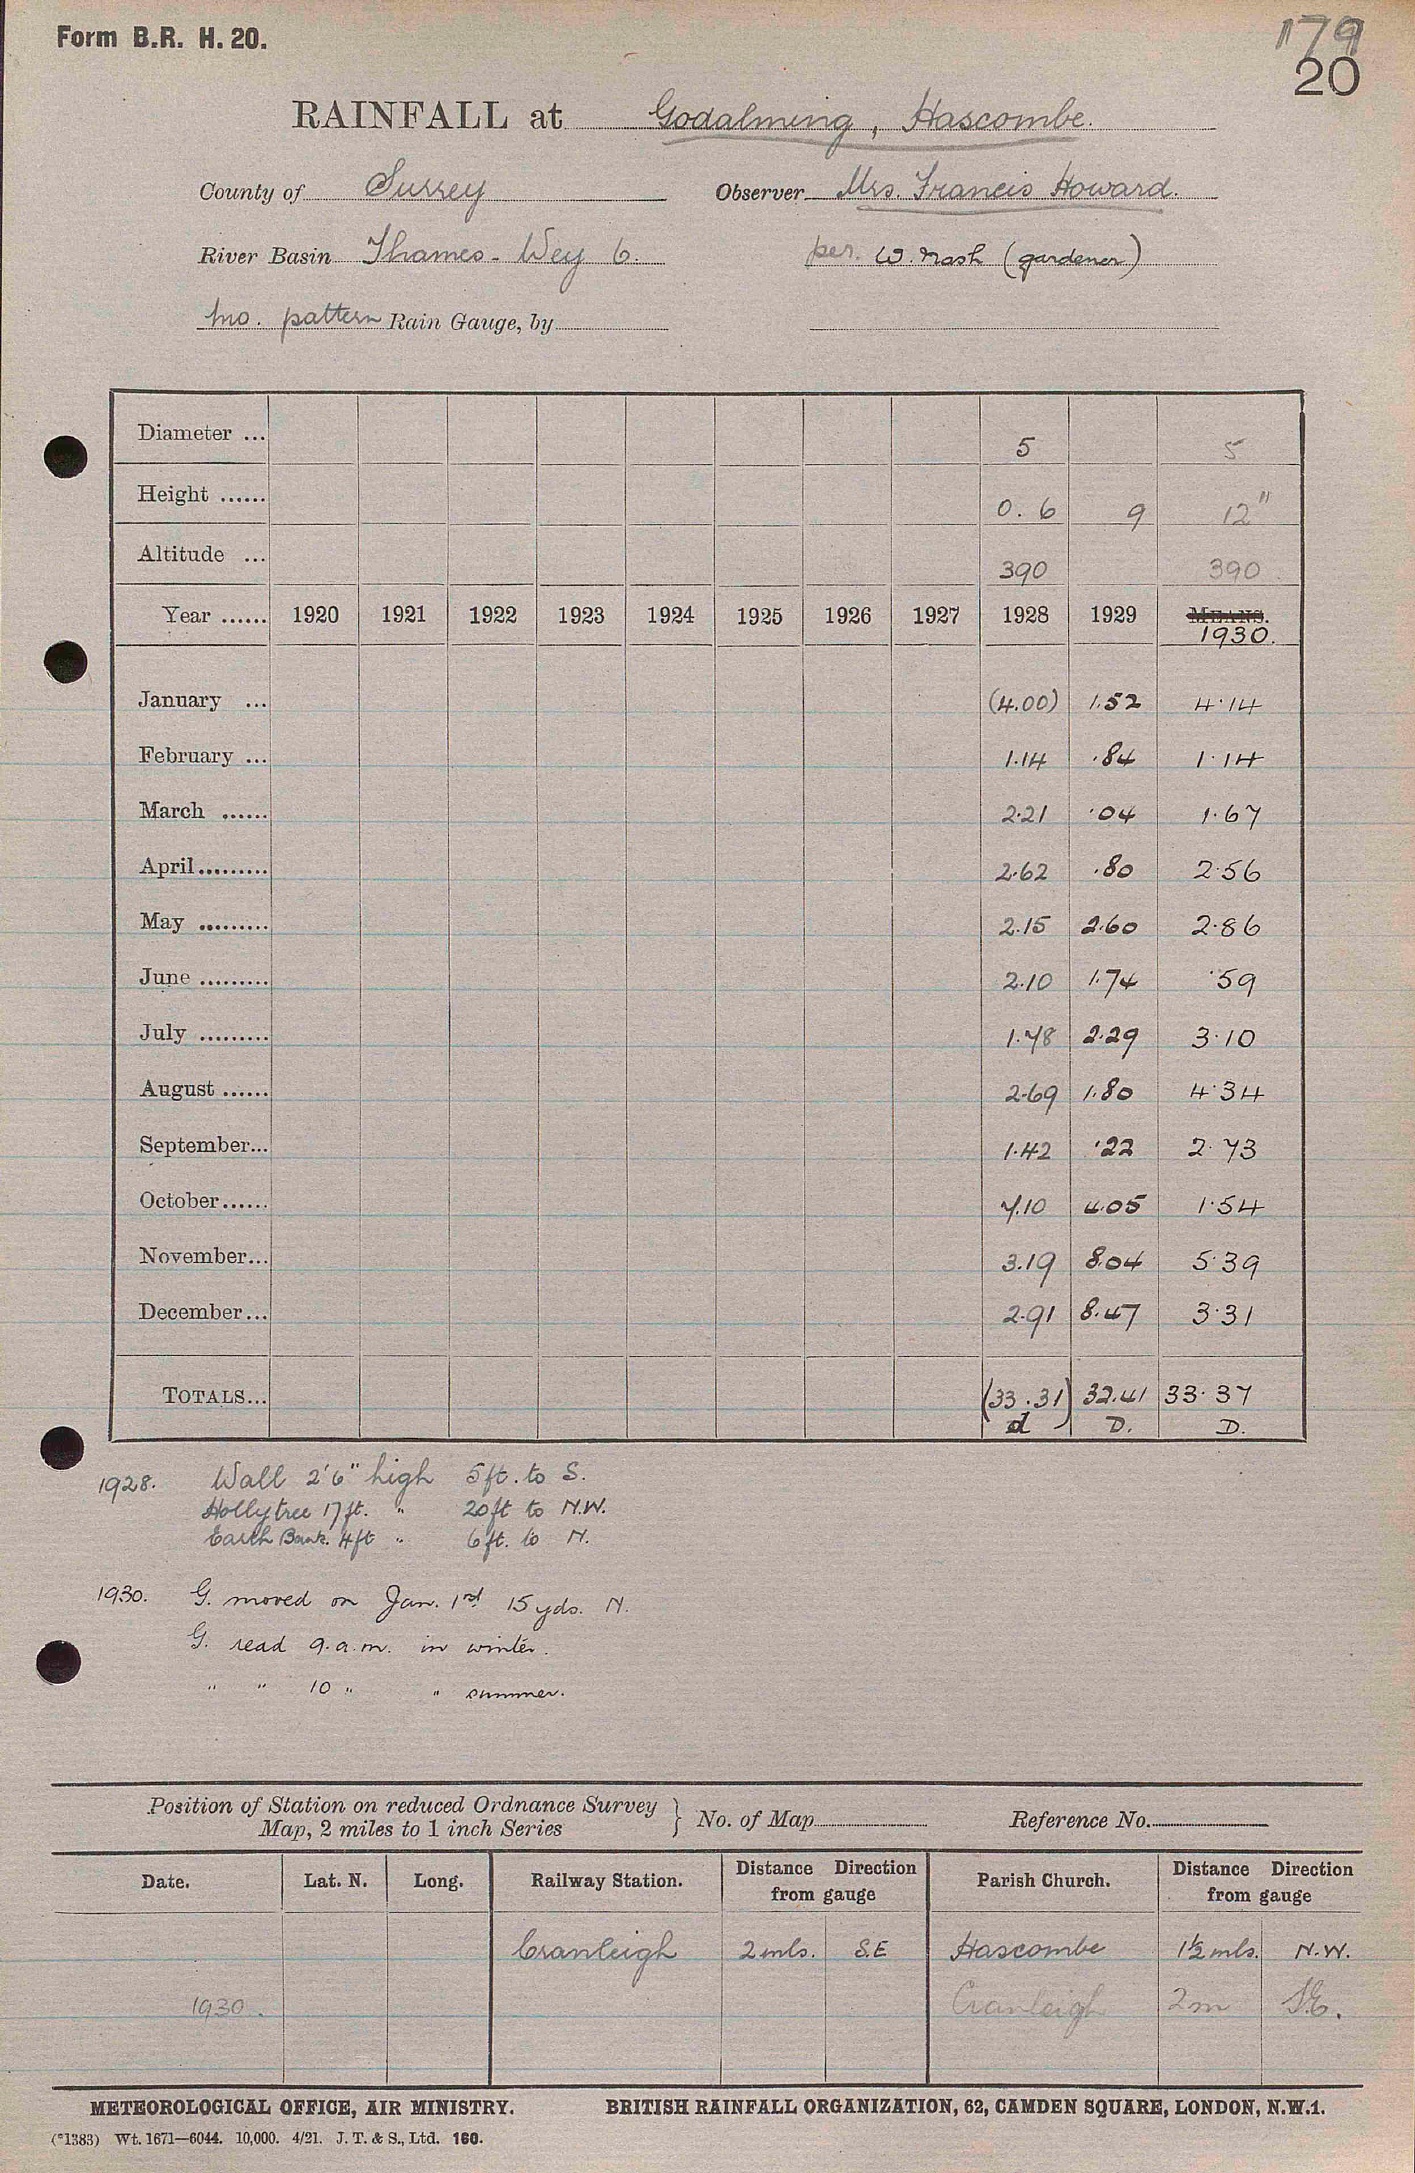 Form B.R. H. 20.
179
20
RAINFALL at Godalming, Hascombe.
County of Surrey Observer Mrs. Francis Howard.
River Basin Thames - Wey 6. per. W. Nash (gardener)
Mo. pattern Rain Gauge, by
Diameter ... 5 5
Height ...... 0.6 9 12"
Altitude ... 390 390
Year ...... 1920 1921 1922 1923 1924 1925 1926 1927 1928 1929 MEANS.
1930.
January ... (4.00) 1.52 4.14
February ... 1.14 .84 1.14
March ...... 2.21 .04 1.67
April......... 2.62 .80 2.56
May ......... 2.15 2.60 2.86
June ......... 2.10 1.74 .59
July ......... 1.78 2.29 3.10
August ...... 2.69 1.80 4.34
September... 1.42 .22 2.73
October...... 7.10 4.05 1.54
November... 3.19 8.04 5.39
December... 2.91 8.47 3.31
TOTALS... (33.31) 32.41 33.37
d D. D.
1928. Wall 2'6" high 5ft. to S.
Holly tree 17 ft. " 20ft to N.W.
Earth Bank. 4ft " 6ft. to N.
1930. G. moved on Jan. 1st 15 yds. N.
G. read 9.a.m. in winter.
" " 10 " " summer.
Position of Station on reduced Ordnance Survey
Map, 2 miles to 1 inch Series } No. of Map Reference No.
Date. Lat. N. Long. Railway Station. Distance Direction from gauge Parish Church. Distance Direction from gauge
Cranleigh 2 mls. S.E Hascombe 1½ mls. N.W.
1930. Cranleigh 2m S.E.
METEOROLOGICAL OFFICE, AIR MINISTRY. BRITISH RAINFALL ORGANIZATION, 62, CAMDEN SQUARE, LONDON, N.W.1.
(*1383) Wt. 1671—6044. 10,000. 4/21. J. T. & S., Ltd. 160.